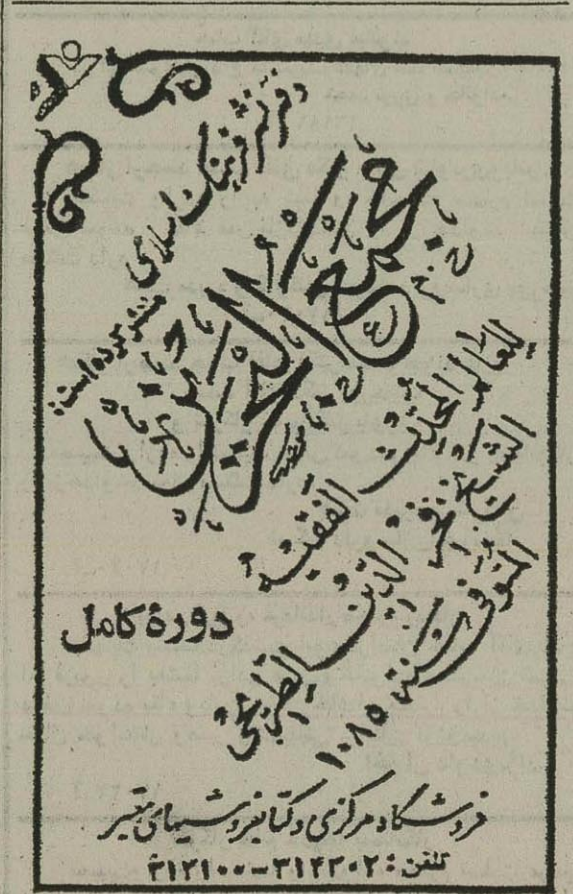 دفتر نشر فرهنگ اسلامی
منتشر کرده است:
مجمع البحرین
للعالم المحدث الفقیه
الشیخ فخر الدین الطریحی
المتوفی سنة ۱۰۸۵
دورهٔ کامل
فروشگاه مرکزی و کتابفروشیهای معتبر
تلفن: ۳۱۴۲۰۲-۳۱۲۱۰۰